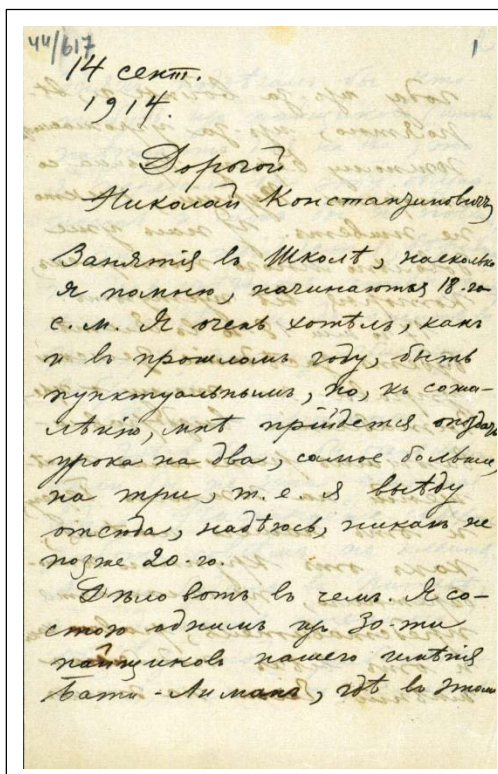 44/617
1
14 сент.
1914.
Дорогой
Николай Константинович,
Занятія въ Школѣ, насколько
я помню, начинаются 18-го
с. м. Я очень хотѣлъ, какъ
и въ прошломъ году, быть
пунктуальнымъ, но, къ сожа-
лѣнію, мнѣ прійдется опоздать
урока на два, самое большее,
на три, т. е. я выѣду
отсюда, надѣюсь, никакъ не
позже 20-го.
Дѣло вотъ въ чемъ. Я со-
стою однимъ изъ 30-ти
пайщиковъ нашего имѣнія
Бати-Лиманъ, гдѣ въ этомъ